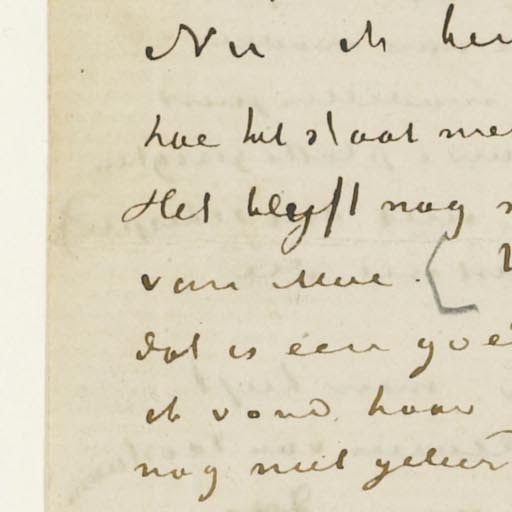 Nu ik
hoe het staat me
Het blyft nog
van Moe. [
dat is een goe
ik vond haar
nog niet gebeur